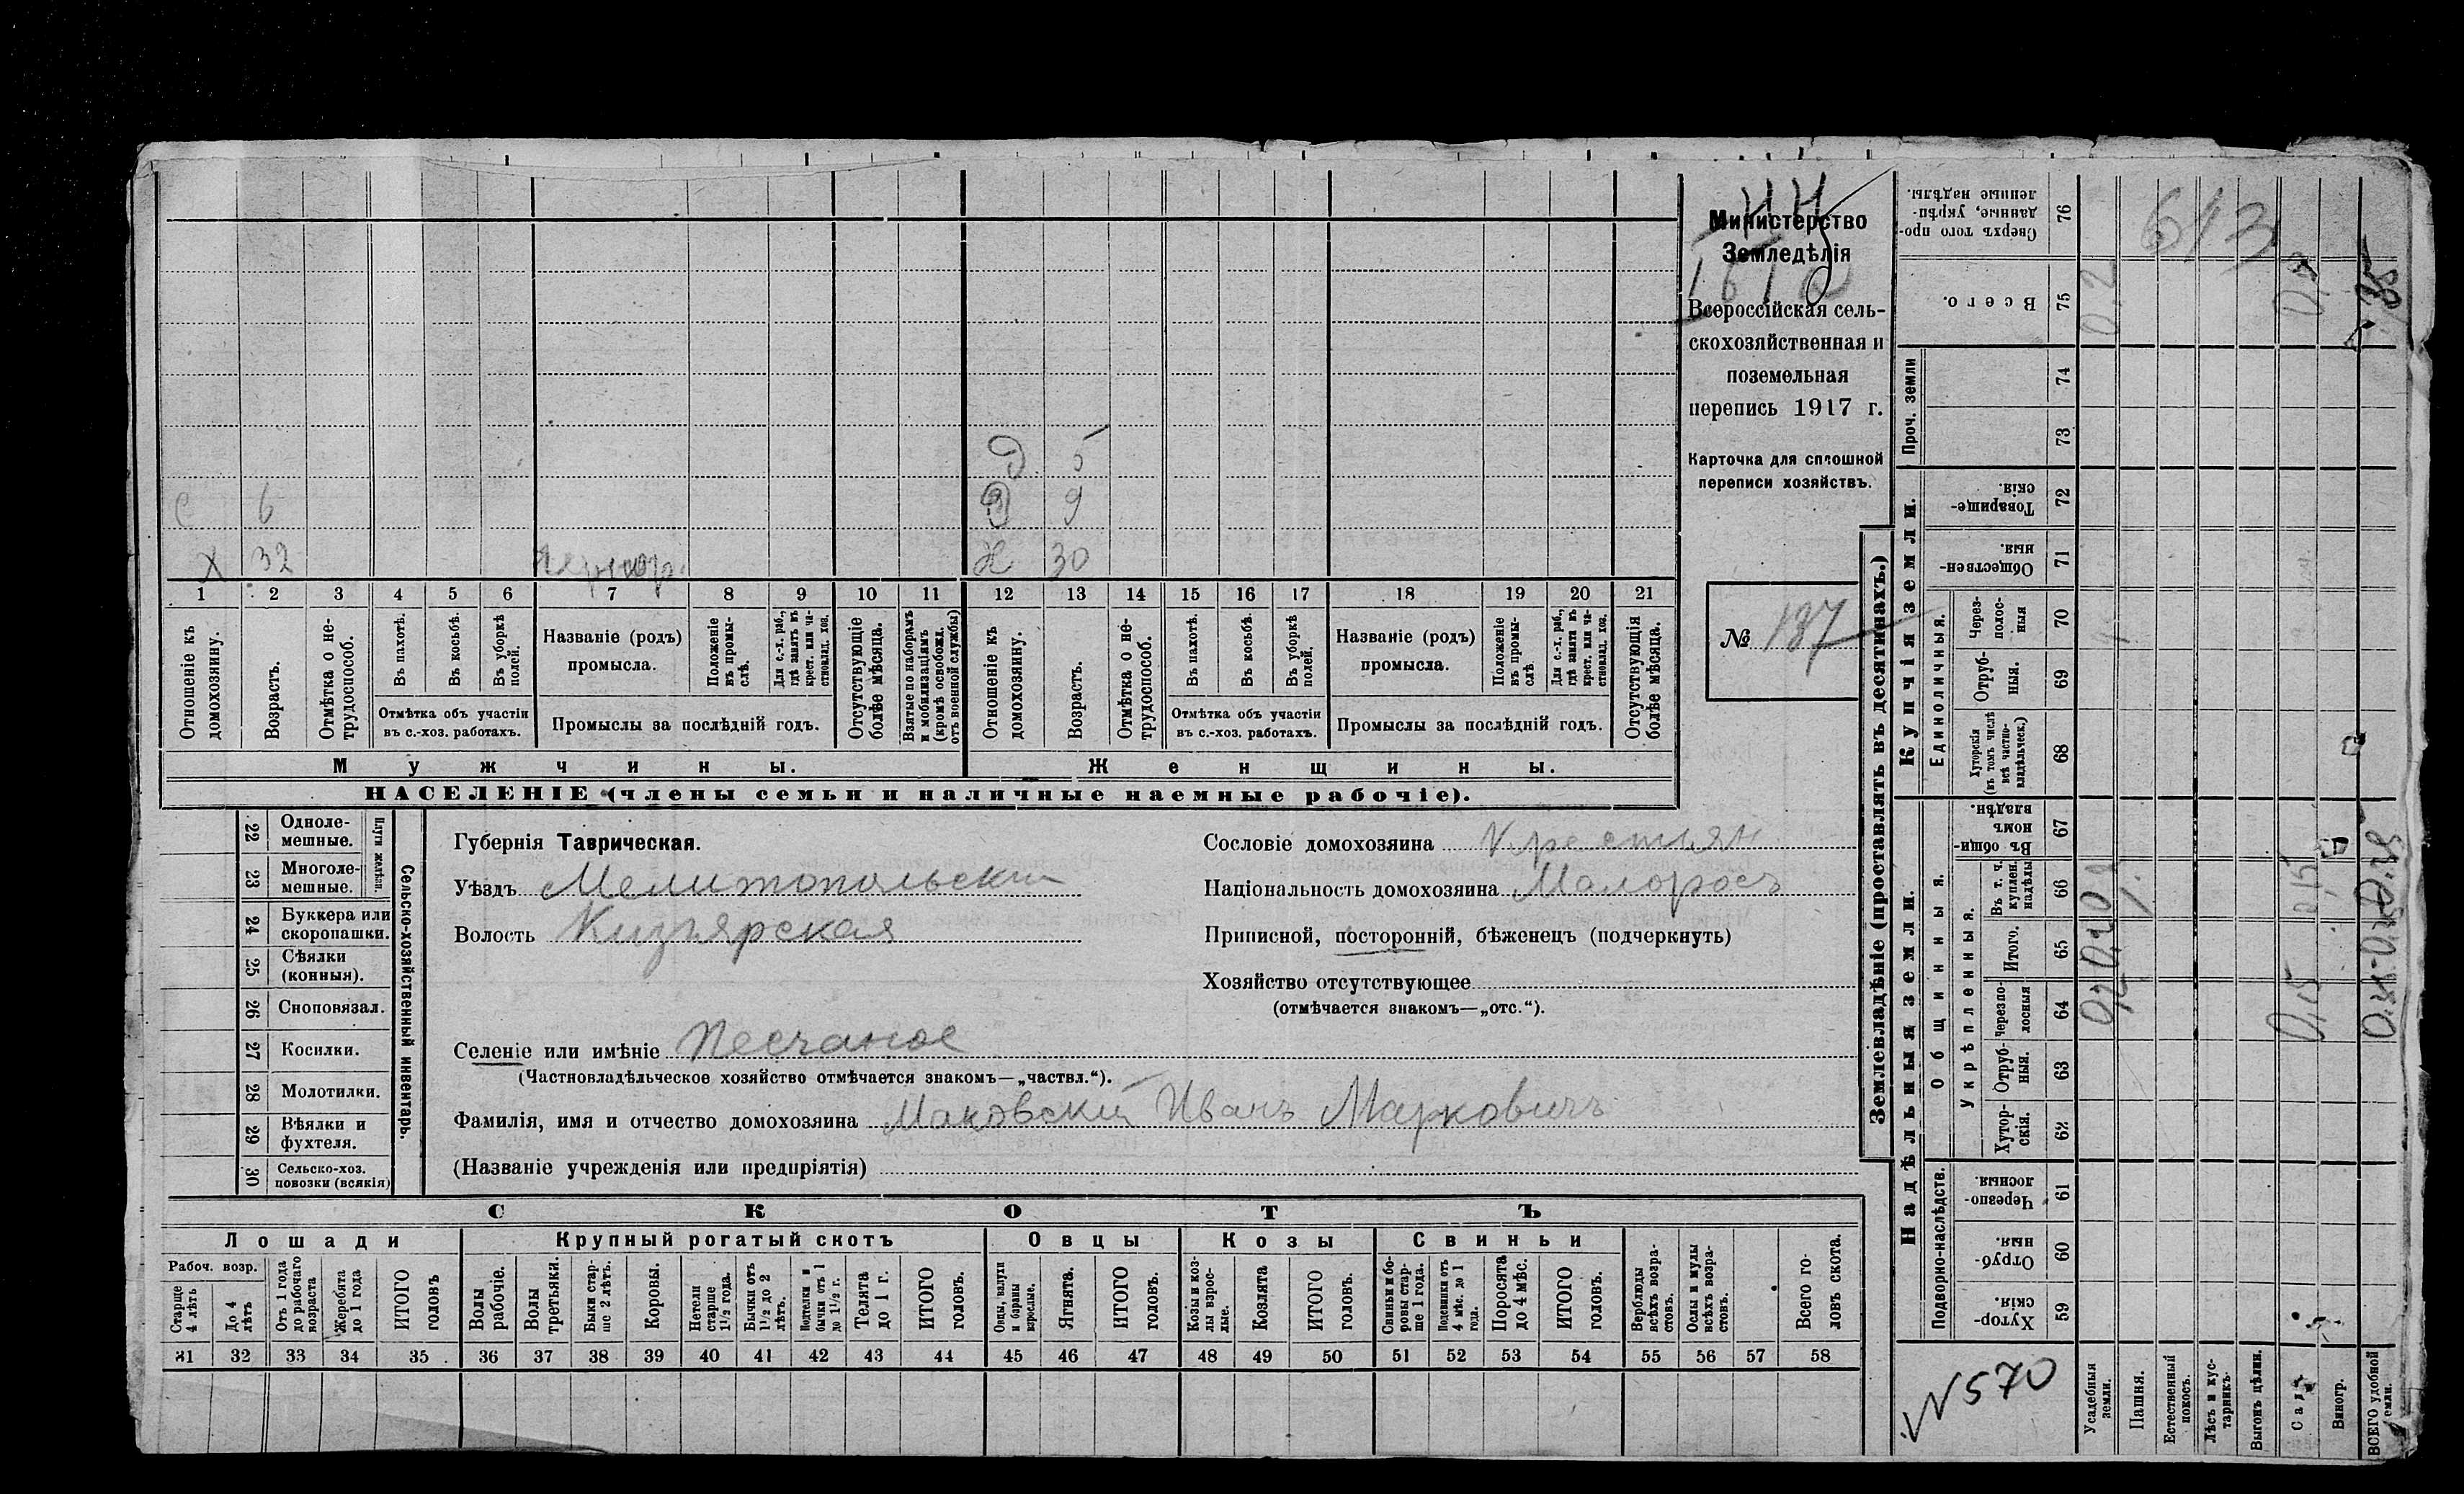 Министерство
Земледѣлія
Всероссійская сель-
скохозяйственная и
поземельная
перепись 1917 г.
Карточка для сплошной
переписи хозяйствъ.
№ 187
613
Д 5
С 6
Д 9
Х 32
Х 30
1 2 3 4 5 6 7 8 9 10 11 12 13 14 15 16 17 18 19 20 21
Отношеніе къ домохозяину.
Возрастъ.
Отмѣтка о не-трудоспособ.
Въ пахотѣ.
Въ косьбѣ.
Въ уборкѣ полей.
Отмѣтка объ участіи
въ с.-хоз. работахъ.
Названіе (родъ)
промысла.
Положеніе въ промы-слѣ.
Для с.-х. раб., гдѣ занятъ въ крест. или ча-стновлад. хоз.
Промыслы за послѣдній годъ.
Отсутствующіе болѣе мѣсяца.
Взятые по наборамъ и мобилизаціямъ (кромѣ освобожд. отъ военной службы)
Отношеніе къ домохозяину.
Возрастъ.
Отмѣтка о не-трудоспособ.
Въ пахотѣ.
Въ косьбѣ.
Въ уборкѣ полей.
Отмѣтка объ участіи
въ с.-хоз. работахъ.
Названіе (родъ)
промысла.
Положеніе въ промы-слѣ.
Для с.-х. раб., гдѣ заняти въ крест. или ча-стновлад. хоз.
Промыслы за послѣдній годъ.
Отсутствующія болѣе мѣсяца.
Мужчины.
Женщины.
НАСЕЛЕНІЕ (члены семьи и наличные наемные рабочіе).
Сельско-хозяйственный инвентарь.
Плуги желѣзн.
22 Одноле-мешные.
23 Многоле-мешные.
24 Буккера или скоропашки.
25 Сѣялки (конныя).
26 Сноповязал.
27 Косилки.
28 Молотилки.
29 Вѣялки и фухтеля.
30 Сельско-хоз. повозки (всякія)
Губернія Таврическая.
Уѣздъ Мелитопольскій
Волость Кизіярская
Сословіе домохозяина Крестьян
Національность домохозяина Малоросъ
Приписной, посторонній, бѣженецъ (подчеркнуть)
Хозяйство отсутствующее
(отмѣчается знакомъ—„отс.“).
Селеніе или имѣніе Песчаное
(Частновладѣльческое хозяйство отмѣчается знакомъ—„частвл.“).
Фамилія, имя и отчество домохозяина Маковскій Иванъ Марковичъ
(Названіе учрежденія или предпріятія)
СКОТЪ
Лошади
Крупный рогатый скотъ
Овцы
Козы
Свиньи
Рабоч. возр.
Старше 4 лѣтъ
До 4 лѣтъ
Отъ 1 года до рабочаго возраста
Жеребята до 1 года
ИТОГО головъ
Волы рабочіе.
Волы третьяки.
Быки стар-ше 2 лѣтъ.
Коровы.
Нетели старше 1½ года.
Бычки отъ 1½ до 2 лѣтъ.
Подтелки и бычки отъ 1 до 1½ г.
Телята до 1 г.
ИТОГО головъ.
Овцы, валухи и бараны взрослые.
Ягнята.
ИТОГО головъ.
Козы и коз-лы взрос-лые.
Козлята
ИТОГО головъ.
Свиньи и бо-ровы стар-ше 1 года.
Подсвинки отъ 4 мѣс. до 1 года.
Поросята до 4 мѣс.
ИТОГО головъ.
Верблюды всѣхъ возра-стовъ.
Ослы и мулы всѣхъ возра-стовъ.
Всего го-ловъ скота.
31 32 33 34 35 36 37 38 39 40 41 42 43 44 45 46 47 48 49 50 51 52 53 54 55 56 57 58
Землевладѣніе (проставлять въ десятинахъ.)
Надѣльныя земли.
Купчія земли.
Проч. земли
Подворно-наслѣдств.
Общинныя.
Укрѣпленныя.
Единоличныя.
76 Сверхъ того про-данные, укрѣп-ленные надѣлы.
75 Всего.
74
73
72 Товарище-скія.
71 Обществен-ныя.
70 Через-полос-ныя
69 Отруб-ныя.
68 Хуторскія (въ томъ числѣ всѣ частно-владѣльческ.)
67 Въ общи-номъ владѣн.
66 Въ т. ч. куплен. надѣлы
65 Итого.
64 Черезпо-лосныя
63 Отруб-ныя.
62 Хутор-скія.
61 Черезпо-лосныя
60 Отруб-ныя.
59 Хутор-скія.
0,2
0,15
N 570
Усадебныя земли.
Пашня.
Естественный покосъ.
Лѣсъ и кус-тарникъ.
Выгонъ цѣлин.
Садъ
Виногр.
ВСЕГО удобной земли.